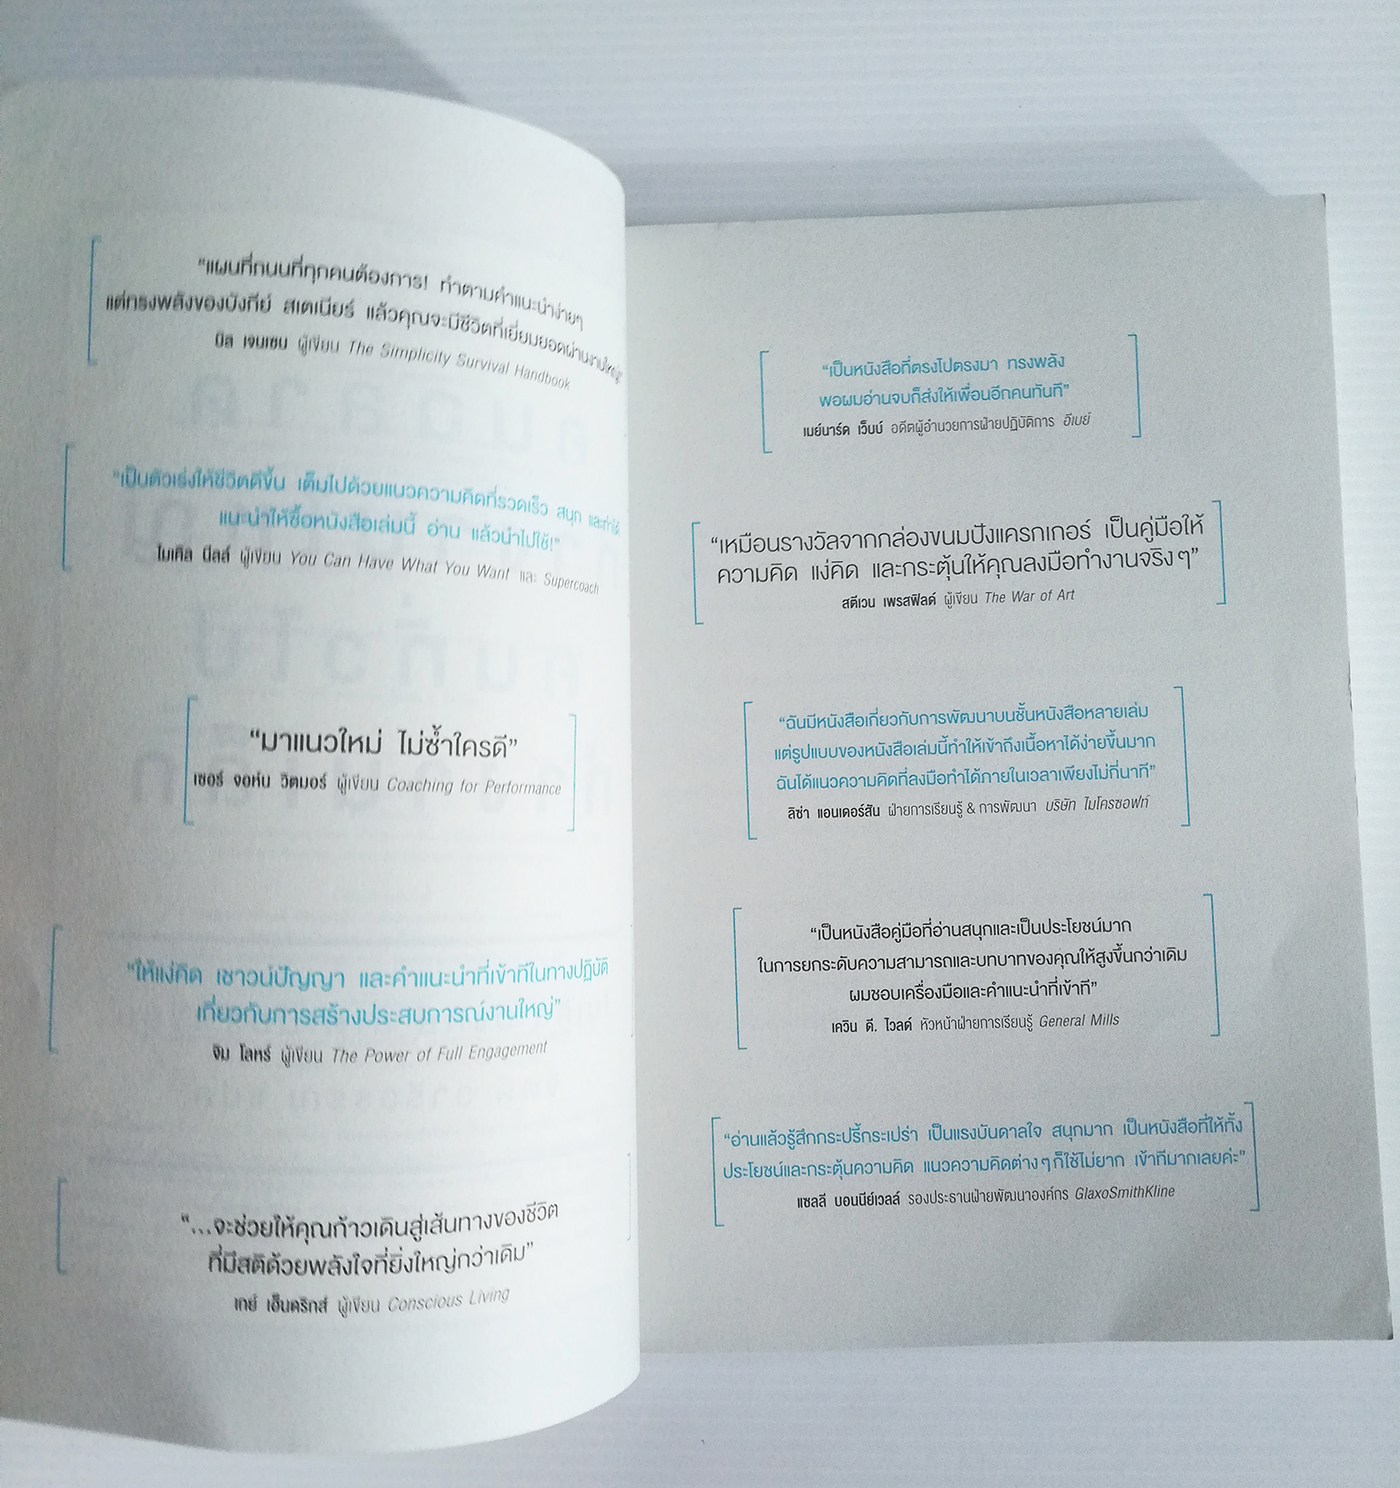 "แผนที่ถนนที่ทุกคนต้องการ! ทำตามคำแนะนำง่ายๆ
แต่ทรงพลังของบังกีย์ สเตเนียร์ แล้วคุณจะมีชีวิตที่เยี่ยมยอดผ่านงานใหญ่"
บิล เจนเซน ผู้เขียน The Simplicity Survival Handbook
"เป็นตัวเร่งให้ชีวิตดีขึ้น เต็มไปด้วยแนวความคิดที่รวดเร็ว สนุก และทำได้
แนะนำให้ซื้อหนังสือเล่มนี้ อ่าน แล้วนำไปใช้!"
ไมเคิล นีลล์ ผู้เขียน You Can Have What You Want และ Supercoach
"มาแนวใหม่ ไม่ซ้ำใครดี"
เซอร์ จอห์น วิตมอร์ ผู้เขียน Coaching for Performance
"ให้แง่คิด เชาวน์ปัญญา และคำแนะนำที่เข้าทีในทางปฏิบัติ
เกี่ยวกับการสร้างประสบการณ์งานใหญ่"
จิม โลหร์ ผู้เขียน The Power of Full Engagement
"...จะช่วยให้คุณก้าวเดินสู่เส้นทางของชีวิต
ที่มีสติด้วยพลังใจที่ยิ่งใหญ่กว่าเดิม"
เกย์ เฮ็นดริกส์ ผู้เขียน Conscious Living
"เป็นหนังสือที่ตรงไปตรงมา ทรงพลัง
พอผมอ่านจบก็ส่งให้เพื่อนอีกคนทันที"
เมย์นาร์ด เว็บบ์ อดีตผู้อำนวยการฝ่ายปฏิบัติการ อีเบย์
"เหมือนรางวัลจากกล่องขนมปังแครกเกอร์ เป็นคู่มือให้
ความคิด แง่คิด และกระตุ้นให้คุณลงมือทำงานจริงๆ"
สตีเวน เพรสฟิลด์ ผู้เขียน The War of Art
"ฉันมีหนังสือเกี่ยวกับการพัฒนาบนชั้นหนังสือหลายเล่ม
แต่รูปแบบของหนังสือเล่มนี้ทำให้เข้าถึงเนื้อหาได้ง่ายขึ้นมาก
ฉันได้แนวความคิดที่ลงมือทำได้ภายในเวลาเพียงไม่กี่นาที"
ลิซ่า แอนเดอร์สัน ฝ่ายการเรียนรู้ & การพัฒนา บริษัท ไมโครซอฟท์
"เป็นหนังสือคู่มือที่อ่านสนุกและเป็นประโยชน์มาก
ในการยกระดับความสามารถและบทบาทของคุณให้สูงขึ้นกว่าเดิม
ผมชอบเครื่องมือและคำแนะนำที่เข้าที"
เควิน ดี. ไวลด์ หัวหน้าฝ่ายการเรียนรู้ General Mills
"อ่านแล้วรู้สึกกระปรี้กระเปร่า เป็นแรงบันดาลใจ สนุกมาก เป็นหนังสือที่ให้ทั้ง
ประโยชน์และกระตุ้นความคิด แนวความคิดต่างๆก็ใช้ไม่ยาก เข้าทีมากเลยค่ะ"
แซลลี บอนนีย์เวลล์ รองประธานฝ่ายพัฒนาองค์กร GlaxoSmithKline